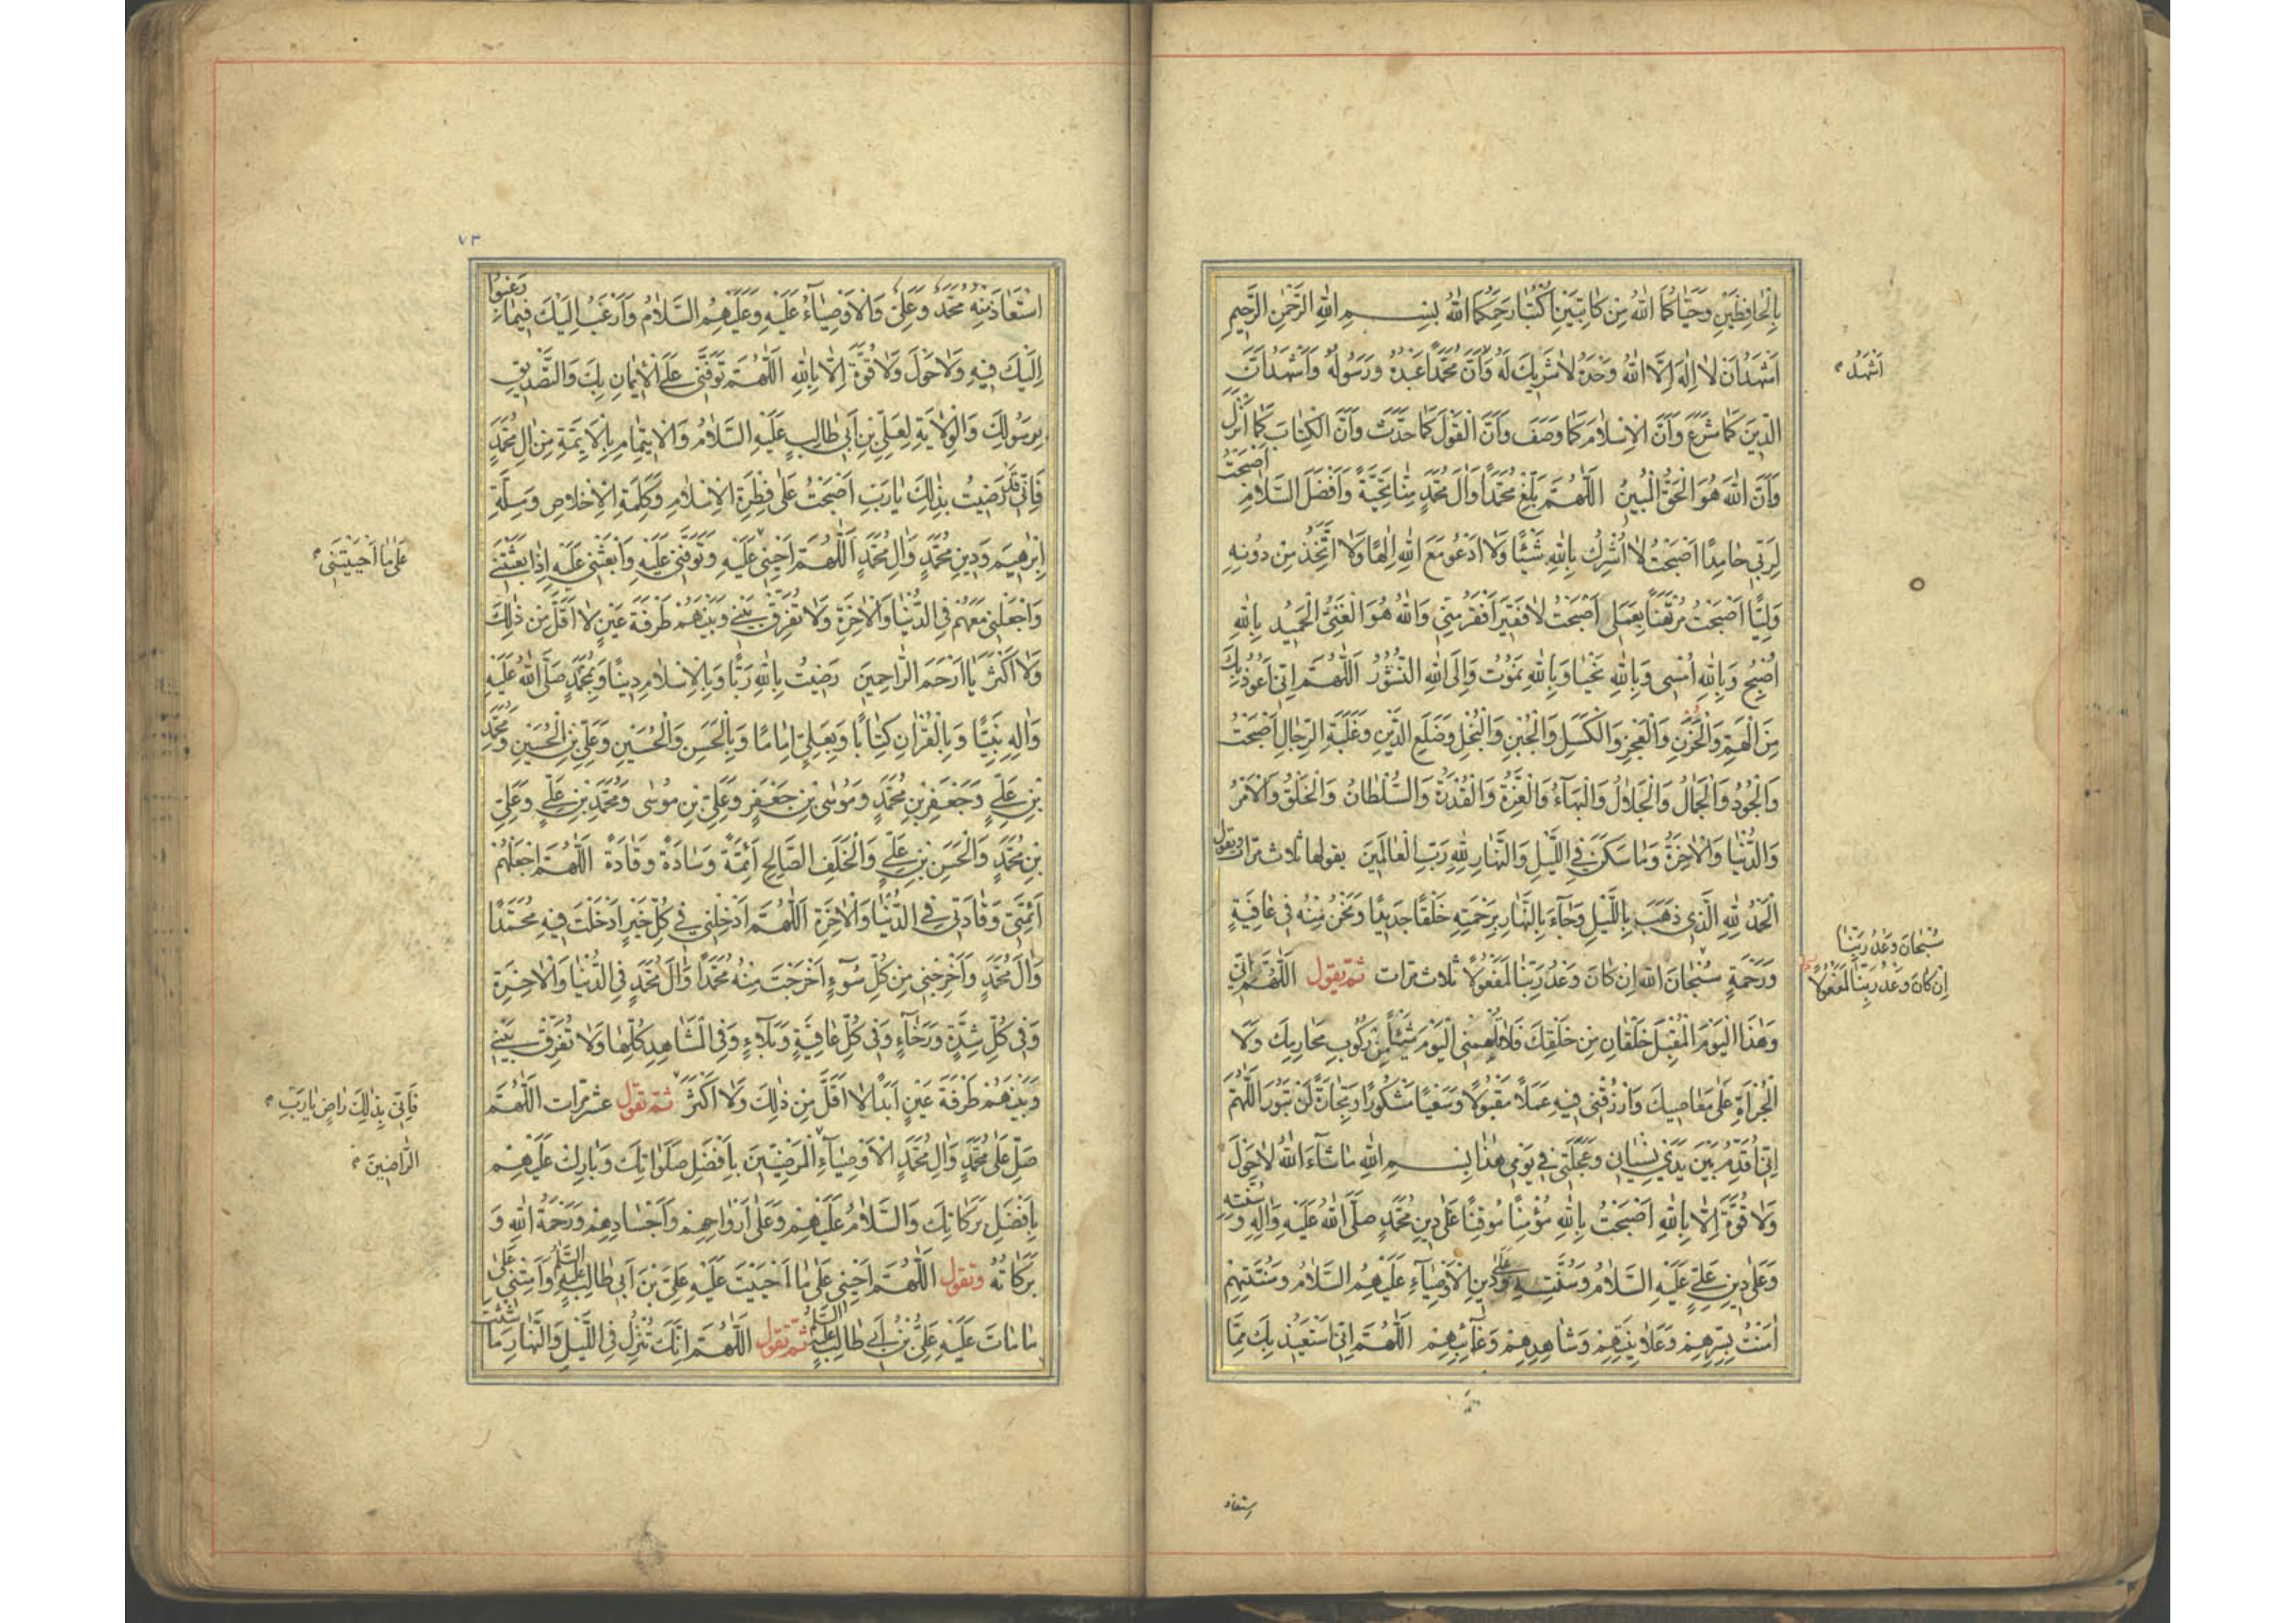 بِالْحَافِظَيْنِ وَحَيَّاكُمَا اللهُ مِنْ كَاتِبَيْنِ اُكْتُبَا رَحِمَكُمَا اللهُ بِسْمِ اللهِ الرَّحْمٰنِ الرَّحِيمِ
اَشْهَدُ اَنْ لَا اِلٰهَ اِلَّا اللهُ وَحْدَهُ لَا شَرِيكَ لَهُ وَاَنَّ مُحَمَّدًا عَبْدُهُ وَرَسُولُهُ وَاَشْهَدُ اَنَّ
اَشْهَدُ
الدِّينَ كَمَا شَرَعَ وَاَنَّ الْاِسْلَامَ كَمَا وَصَفَ وَاَنَّ الْقَوْلَ كَمَا حَدَّثَ وَاَنَّ الْكِتَابَ كَمَا اَنْزَلَ
وَاَنَّ اللهَ هُوَ الْحَقُّ الْمُبِينُ اللّٰهُمَّ بَلِّغْ مُحَمَّدًا وَاٰلَ مُحَمَّدٍ مِنَّا تَحِيَّةً وَاَفْضَلَ السَّلَامِ اَصْبَحْتُ
لِرَبِّي حَامِدًا اَصْبَحْتُ لَا اُشْرِكُ بِاللهِ شَيْئًا وَلَا اَدْعُو مَعَ اللهِ اِلٰهًا وَلَا اَتَّخِذُ مِنْ دُونِهِ
وَلِيًّا اَصْبَحْتُ مُرْتَهَنًا بِعَمَلِي اَصْبَحْتُ لَا فَقِيرَ اَفْقَرُ مِنِّي وَاللهُ هُوَ الْغَنِيُّ الْحَمِيدُ بِاللهِ
اُصْبِحُ وَبِاللهِ اُمْسِي وَبِاللهِ نَحْيَا وَبِاللهِ نَمُوتُ وَاِلَى اللهِ النُّشُورُ اَللّٰهُمَّ اِنِّي اَعُوذُ بِكَ
مِنَ الْهَمِّ وَالْحُزْنِ وَالْعَجْزِ وَالْكَسَلِ وَالْجُبْنِ وَالْبُخْلِ وَضَلَعِ الدَّيْنِ وَغَلَبَةِ الرِّجَالِ اَصْبَحْتُ
وَالْجُودُ وَالْجَمَالُ وَالْجَلَالُ وَالْبَهَاءُ وَالْعِزَّةُ وَالْقُدْرَةُ وَالسُّلْطَانُ وَالْخَلْقُ وَالْاَمْرُ
وَالدُّنْيَا وَالْاٰخِرَةُ وَمَا سَكَنَ فِي اللَّيْلِ وَالنَّهَارِ لِلّٰهِ رَبِّ الْعَالَمِينَ يقولها ثلاث مرات وتقول
اَلْحَمْدُ لِلّٰهِ الَّذِي ذَهَبَ بِاللَّيْلِ وَجَاءَ بِالنَّهَارِ بِرَحْمَتِهِ خَلْقًا جَدِيدًا وَنَحْنُ مِنْهُ فِي عَافِيَةٍ
سُبْحَانَ وَعْدُ رَبِّنَا
اِنْ كَانَ وَعْدُ رَبِّنَا لَمَفْعُولًا
وَرَحْمَةٍ سُبْحَانَ اللهِ اِنْ كَانَ وَعْدُ رَبِّنَا لَمَفْعُولًا ثلاث مرات ثم تقول اَللّٰهُمَّ اِنِّي
وَهٰذَا الْيَوْمَ الْمُقْبِلَ خَلْقَانِ مِنْ خَلْقِكَ فَلَا يَهُمَّنِي الْيَوْمَ شَيْئًا مِنْ رُكُوبِ مَحَارِمِكَ وَلَا
الْجُرْاَةِ عَلٰى مَعَاصِيكَ وَارْزُقْنِي فِيهِ عَمَلًا مَقْبُولًا وَسَعْيًا مَشْكُورًا وَتِجَارَةً لَنْ تَبُورَ اَللّٰهُمَّ
اِنِّي اُقَدِّمُ بَيْنَ يَدَيْ نِسْيَانِي وَعَجَلَتِي فِي يَوْمِي هٰذَا بِسْمِ اللهِ مَا شَاءَ اللهُ لَا حَوْلَ
وَلَا قُوَّةَ اِلَّا بِاللهِ اَصْبَحْتُ بِاللهِ مُؤْمِنًا مُوقِنًا عَلٰى دِينِ مُحَمَّدٍ صَلَّى اللهُ عَلَيْهِ وَاٰلِهِ وَسُنَّتِهِ
وَعَلٰى دِينِ عَلِيٍّ عَلَيْهِ السَّلَامُ وَسُنَّتِهِ وَعَلٰى دِينِ الْاَوْصِيَاءِ عَلَيْهِمُ السَّلَامُ وَسُنَّتِهِمْ
اٰمَنْتُ بِسِرِّهِمْ وَعَلَانِيَتِهِمْ وَشَاهِدِهِمْ وَغَائِبِهِمْ اَللّٰهُمَّ اِنِّي اَسْتَعِيذُ بِكَ مِمَّا
استعاذ
٧٣
اسْتَعَاذَ مِنْهُ مُحَمَّدٌ وَعَلِيٌّ وَالْاَوْصِيَاءُ عَلَيْهِ وَعَلَيْهِمُ السَّلَامُ وَاَرْغَبُ اِلَيْكَ فِيمَا رَغِبُوا
اِلَيْكَ فِيهِ وَلَا حَوْلَ وَلَا قُوَّةَ اِلَّا بِاللهِ اَللّٰهُمَّ تَوَفَّنِي عَلَى الْاِيمَانِ بِكَ وَالتَّصْدِيقِ
بِرَسُولِكَ وَالْوِلَايَةِ لِعَلِيِّ بْنِ اَبِي طَالِبٍ عَلَيْهِ السَّلَامُ وَالْاِيتِمَامِ بِالْاَئِمَّةِ مِنْ اٰلِ مُحَمَّدٍ
فَاِنِّي قَدْ رَضِيتُ بِذٰلِكَ يَا رَبِّ اَصْبَحْتُ عَلٰى فِطْرَةِ الْاِسْلَامِ وَكَلِمَةِ الْاِخْلَاصِ وَمِلَّةِ
اِبْرٰهِيمَ وَدِينِ مُحَمَّدٍ وَاٰلِ مُحَمَّدٍ اَللّٰهُمَّ اَحْيِنِي عَلَيْهِ وَتَوَفَّنِي عَلَيْهِ وَابْعَثْنِي عَلَيْهِ اِذَا بَعَثْتَنِي
عَلٰى مَا اَحْيَيْتَنِي
وَاجْعَلْنِي مَعَهُمْ فِي الدُّنْيَا وَالْاٰخِرَةِ وَلَا تُفَرِّقْ بَيْنِي وَبَيْنَهُمْ طَرْفَةَ عَيْنٍ لَا اَقَلَّ مِنْ ذٰلِكَ
وَلَا اَكْثَرَ يَا اَرْحَمَ الرَّاحِمِينَ رَضِيتُ بِاللهِ رَبًّا وَبِالْاِسْلَامِ دِينًا وَبِمُحَمَّدٍ صَلَّى اللهُ عَلَيْهِ
وَاٰلِهِ نَبِيًّا وَبِالْقُرْاٰنِ كِتَابًا وَبِعَلِيٍّ اِمَامًا وَبِالْحَسَنِ وَالْحُسَيْنِ وَعَلِيِّ بْنِ الْحُسَيْنِ وَمُحَمَّدِ
بْنِ عَلِيٍّ وَجَعْفَرِ بْنِ مُحَمَّدٍ وَمُوسَى بْنِ جَعْفَرٍ وَعَلِيِّ بْنِ مُوسٰى وَمُحَمَّدِ بْنِ عَلِيٍّ وَعَلِيِّ
بْنِ مُحَمَّدٍ وَالْحَسَنِ بْنِ عَلِيٍّ وَالْخَلَفِ الصَّالِحِ اَئِمَّةً وَسَادَةً وَقَادَةً اَللّٰهُمَّ اجْعَلْهُمْ
اَئِمَّتِي وَقَادَتِي فِي الدُّنْيَا وَالْاٰخِرَةِ اَللّٰهُمَّ اَدْخِلْنِي فِي كُلِّ خَيْرٍ اَدْخَلْتَ فِيهِ مُحَمَّدًا
وَاٰلَ مُحَمَّدٍ وَاَخْرِجْنِي مِنْ كُلِّ سُوءٍ اَخْرَجْتَ مِنْهُ مُحَمَّدًا وَاٰلَ مُحَمَّدٍ فِي الدُّنْيَا وَالْاٰخِرَةِ
وَفِي كُلِّ شِدَّةٍ وَرَخَاءٍ وَفِي كُلِّ عَافِيَةٍ وَبَلَاءٍ وَفِي الْمَشَاهِدِ كُلِّهَا وَلَا تُفَرِّقْ بَيْنِي
وَبَيْنَهُمْ طَرْفَةَ عَيْنٍ اَبَدًا لَا اَقَلَّ مِنْ ذٰلِكَ وَلَا اَكْثَرَ ثم تقول عشر مرات اَللّٰهُمَّ
فَاِنِّي بِذٰلِكَ رَاضٍ يَا رَبِّ
صَلِّ عَلٰى مُحَمَّدٍ وَاٰلِ مُحَمَّدٍ الْاَوْصِيَاءِ الْمَرْضِيِّينَ بِاَفْضَلِ صَلَوَاتِكَ وَبَارِكْ عَلَيْهِمْ
الرَّاضِينَ
بِاَفْضَلِ بَرَكَاتِكَ وَالسَّلَامُ عَلَيْهِمْ وَعَلٰى اَرْوَاحِهِمْ وَاَجْسَادِهِمْ وَرَحْمَةُ اللهِ وَ
بَرَكَاتُهُ وتقول اَللّٰهُمَّ اَحْيِنِي عَلٰى مَا اَحْيَيْتَ عَلَيْهِ عَلِيَّ بْنَ اَبِي طَالِبٍ عَلَيْهِ السَّلَامُ وَاَمِتْنِي عَلٰى
مَا مَاتَ عَلَيْهِ عَلِيُّ بْنُ اَبِي طَالِبٍ عَلَيْهِ السَّلَامُ ثم تقول اَللّٰهُمَّ اِنَّكَ تُنْزِلُ فِي اللَّيْلِ وَالنَّهَارِ مَا شِئْتَ